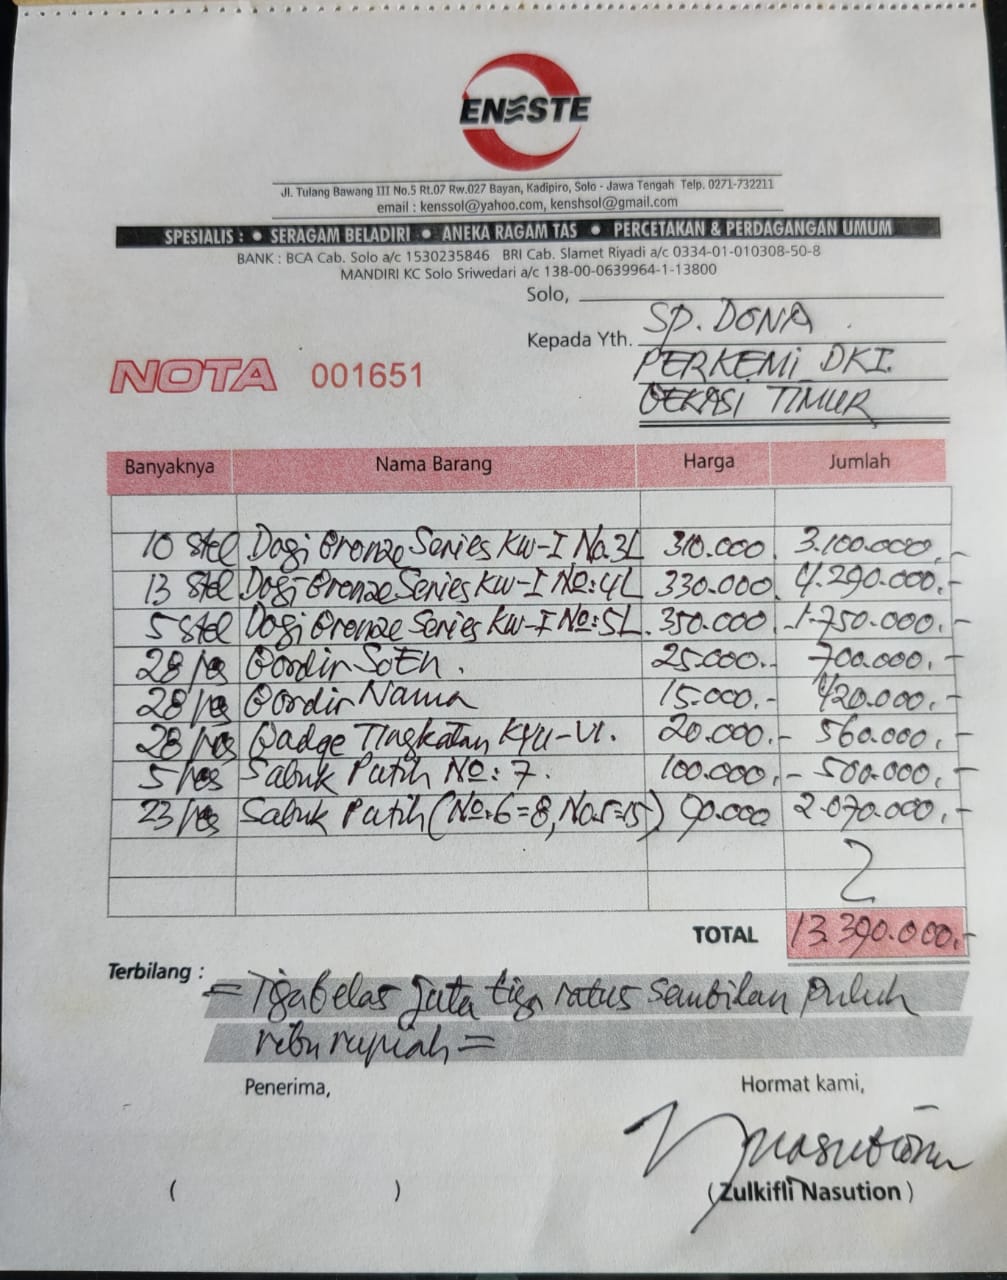 ENESTE
Jl. Tulang Bawang III No.5 Rt.07 Rw.027 Bayan, Kadipiro, Solo - Jawa Tengah Telp. 0271-732211
email : kenssol@yahoo.com, kenshsol@gmail.com
SPESIALIS : • SERAGAM BELADIRI • ANEKA RAGAM TAS • PERCETAKAN & PERDAGANGAN UMUM
BANK : BCA Cab. Solo a/c 1530235846 BRI Cab. Slamet Riyadi a/c 0334-01-010308-50-8
MANDIRI KC Solo Sriwedari a/c 138-00-0639964-1-13800
Solo,
Kepada Yth. SP. DONA
PERKEMI DKI.
BEKASI TIMUR
NOTA 001651
Banyaknya Nama Barang Harga Jumlah
10 Stel Dogi Bronze Series KW-I No.3L 310.000 3.100.000,-
13 Stel Dogi Bronze Series KW-I No:4L 330.000 4.290.000,-
5 Stel Dogi Bronze Series KW-I No:5L 350.000 1.750.000,-
28 pcs Bordir SoEn. 25.000.- 700.000,-
28 pcs Bordir Nama 15.000.- 420.000,-
28 pcs Badge Tingkatan KYU-VI. 20.000.- 560.000,-
5 pcs Sabuk Putih No:7. 100.000,- 500.000,-
23 pcs Sabuk Putih (No:6=8, No.5=15) 90.000 2.070.000,-
TOTAL 13.390.000,-
Terbilang : = Tigabelas juta tiga ratus sembilan puluh
ribu rupiah =
Penerima, Hormat kami,
Nasution
( ) (Zulkifli Nasution)